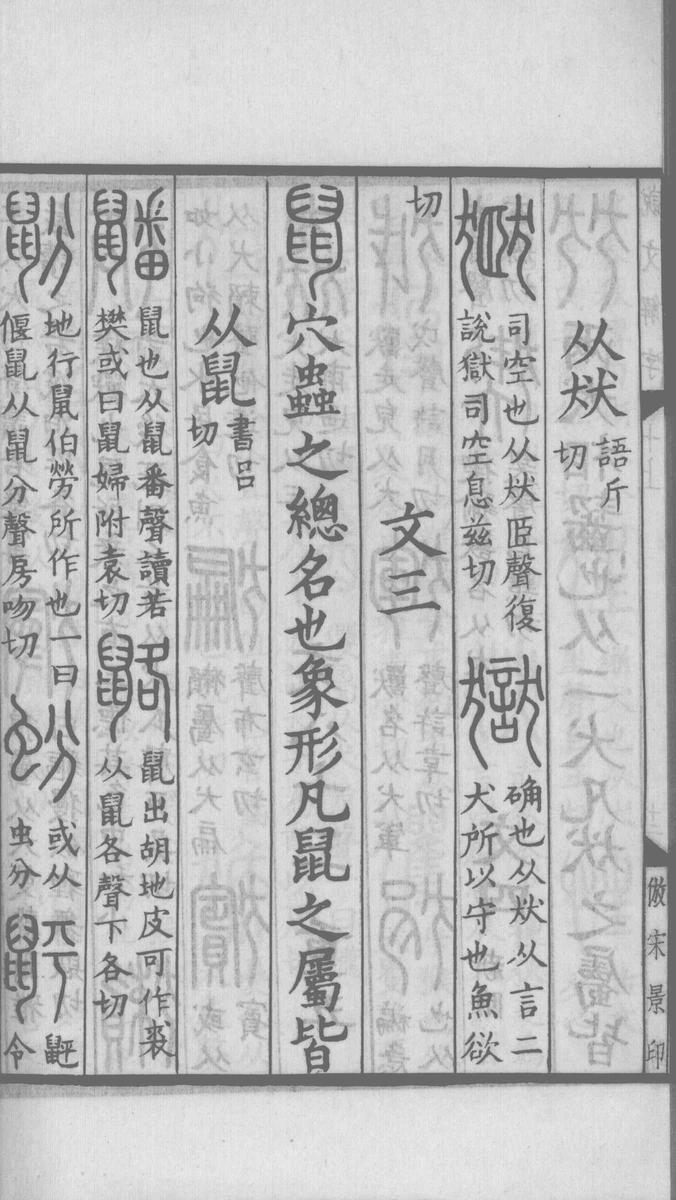 从㹜語斤切
𤞞司空也从㹜𦣞聲復說獄司空息兹切
獄确也从㹜从言二犬所以守也魚欲
切
文三
鼠穴蟲之總名也象形凡鼠之屬皆
从鼠書呂切
鼠也从鼠番聲讀若樊或曰鼠婦附袁切
鼠出胡地皮可作裘从鼠各聲下各切
鼢地行鼠伯勞所作也一曰偃鼠从鼠分聲房吻切
蚡或从虫分
鼮令
倣宋景印